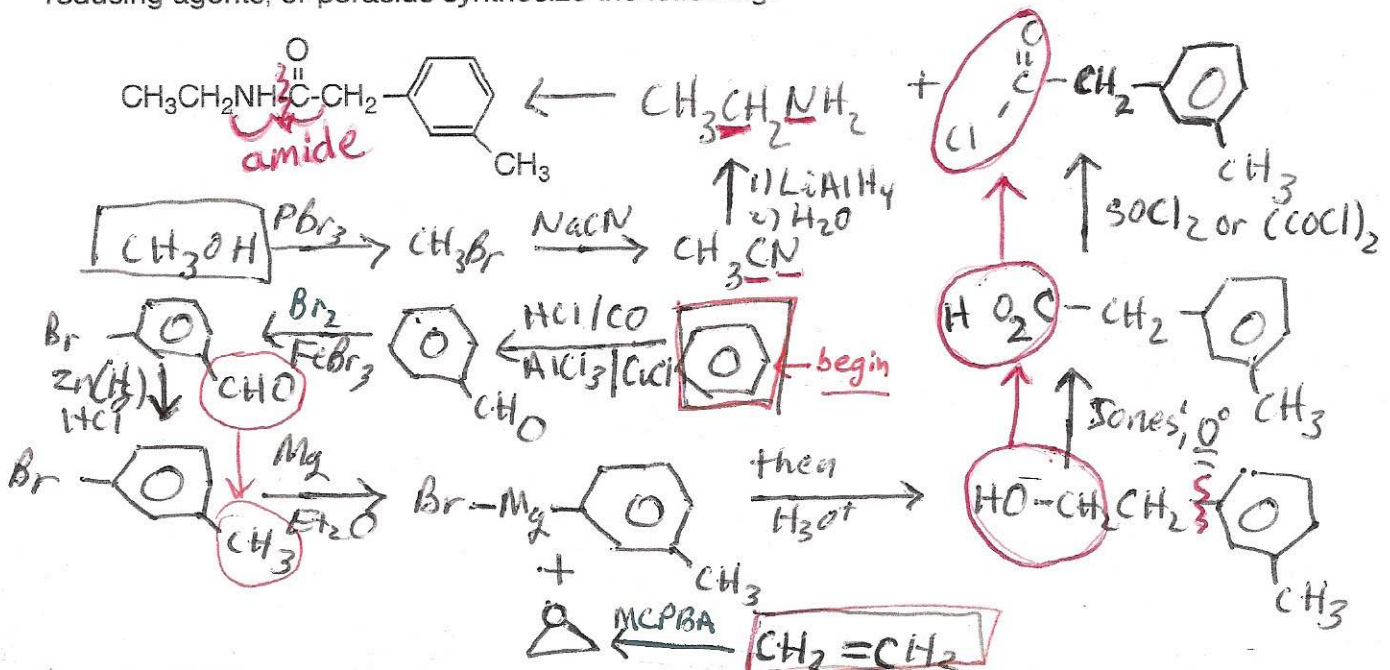 reducing agents, or peracids synthesize the following.
O
CH3CH2NH-C-CH2
CH3
amide
CH3CH2NH2
+
O
C - CH2
Cl
CH3
1) LiAlH4
2) H2O
SOCl2 or (COCl)2
CH3OH
PBr3
CH3Br
NaCN
CH3CN
HO2C - CH2
CH3
Br
Br2
FeBr3
HCl/CO
AlCl3/CuCl
begin
CHO
CHO
Zn(Hg)
HCl
Jones', O°
Br
CH3
Mg
Et2O
Br-Mg
CH3
then
H3O+
HO-CH2CH2
CH3
+
O
MCPBA
CH2=CH2